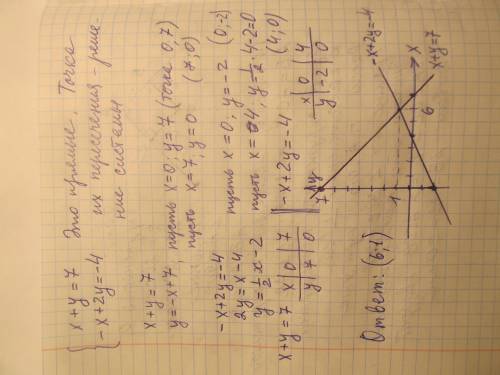 { x+y=7
-x+2y=-4
Это прямые. Точка
их пересечения - реше-
ние системы
x+y=7
y=-x+7, пусть x=0; y=7 (точка 0,7)
пусть x=7, y=0 (7;0)
-x+2y=-4
2y=x-4
y=1/2x-2
пусть x=0; y=-2 (0;-2)
пусть x=4, y=1/2·4-2=0 (4;0)
x+y=7
x | 0 | 7
y | 7 | 0
-x+2y=-4
x | 0 | 4
y | -2 | 0
y
7
1
6
x
-x+2y=-4
x+y=7
Ответ: (6;1)